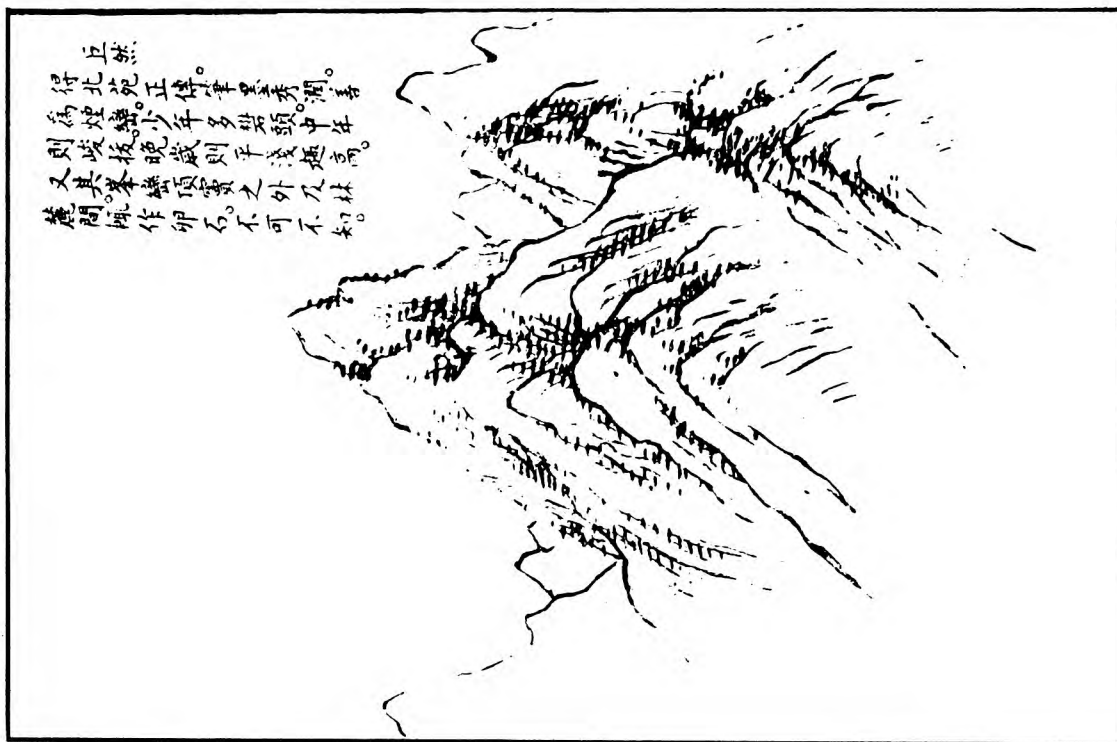 巨然
得北苑正傳。筆墨秀潤。善
爲煙巒。少年多礬頭。中年
則峻拔。晚歲則平淡趣高。
又其峯巒頂竇之外及林
麓間輒作卵石。不可不知。